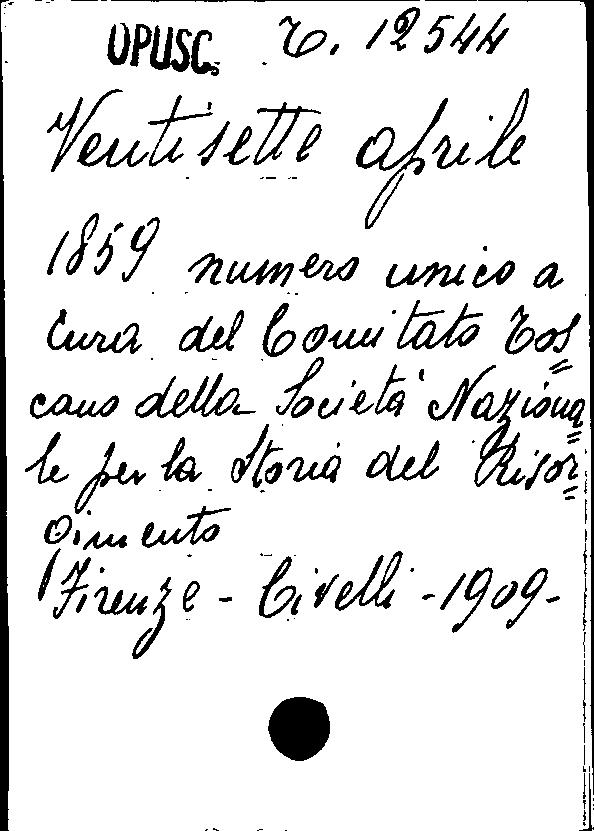 OPUSC. T. 12544
Ventisette aprile
1859 numero unico a
cura del Comitato Tos=
cano della Società Naziona=
le per la Storia del Risor=
gimento
Firenze - Civelli - 1909 -